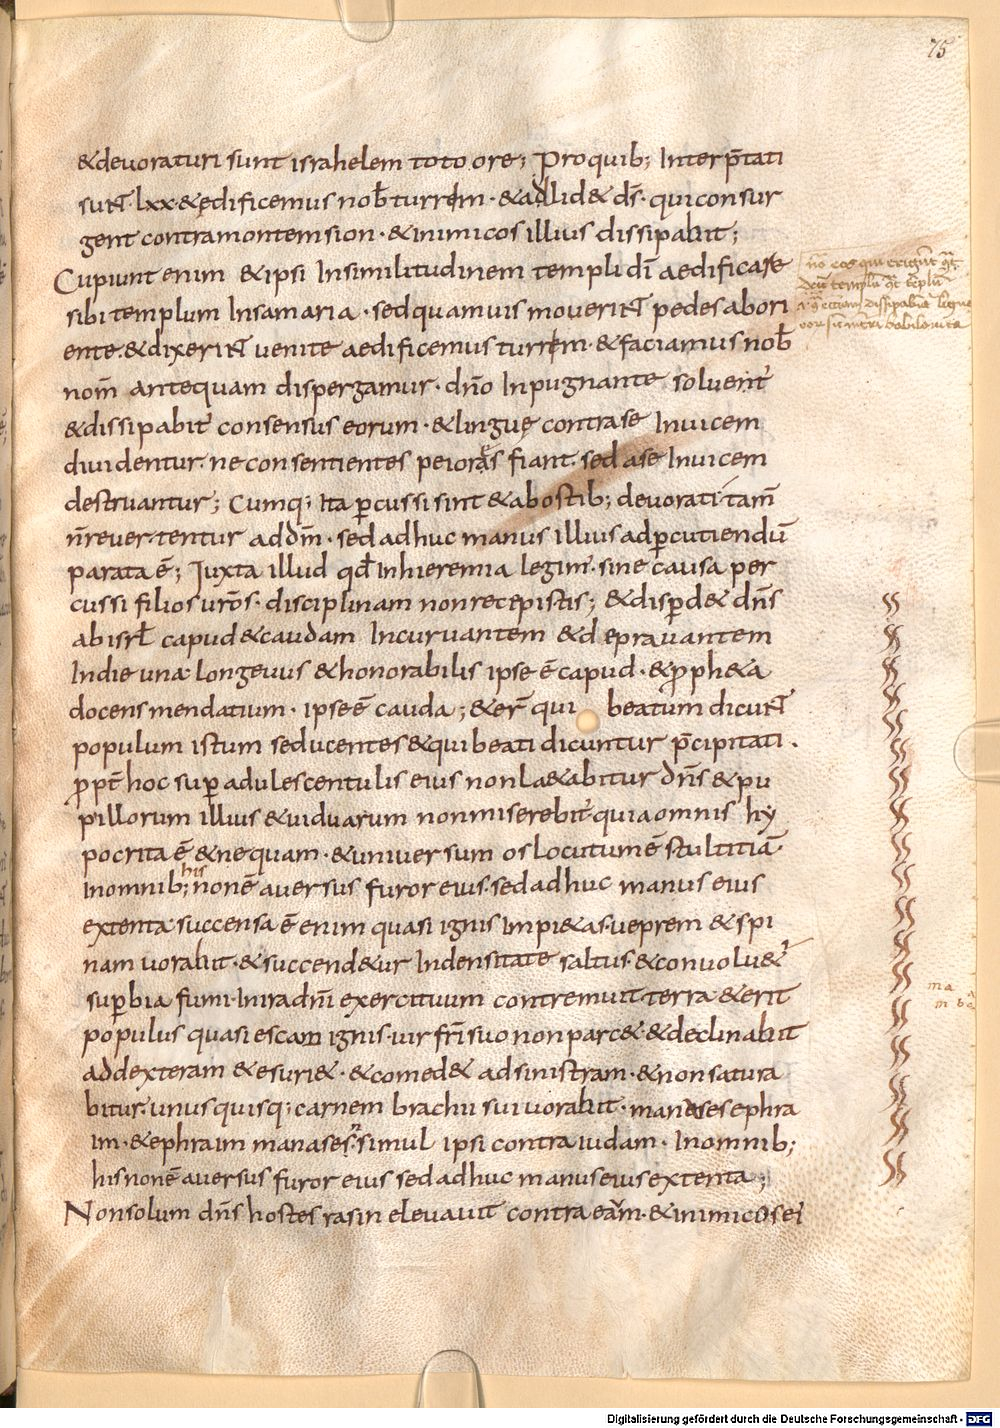 75
&devoraturi sunt israhelem toto ore; Proquib; Interp̄tati
sunt lxx &ędificemus nob̄ turrem · & adlid& d̄s · qui consur
gent contra montem sion · & inimicos illius dissipabit;
Cupiunt enim & ipsi In similitudinem templi dī aedificare
sibi templum In samaria · sed quamvis moverint pedes ab ori
ente · & dixerint venite aedificemus turrem · & faciamus nob̄
nom̄ antequam dispergamur · dn̄o Inpugnante solvent̄
& dissipabit̄ consensus eorum · & linguę contra se Invicem
dividentur · ne consentientes peioras fiant · sed a se Invicem
destruantur; Cumq; Ita p̱cussi sint & ab ostib; devorati tam̄
n̄ revertentur ad dm̄ · sed adhuc manus illius ad p̱cutiendū
parata ē; Iuxta illud qd̄ In hieremia legim̄ · sine causa per
cussi filios ur̄os · disciplinam non recepistis; & disp̱d& dn̄s
ab isrl̄ capud & caudam Incurvantem & depravantem
In die una · longevus & honorabilis ipse ē capud · & p̱ph&a
docens mendatium · ipse ē cauda; & er̄ qui beatum dicunt
populum istum seducentes & qui beati dicuntur p̄cipitati ·
p̱pt̄ hoc sup̱ adulescentulis eius non la&abitur dn̄s & pu
pillorum illius & viduarum non miserebit̄ quia omnis hy
pocrita ē & nequam · & universum os locutum ē stultitiā ·
In omnib; his non ē aversus furor eius · sed adhuc manus eius
extenta · succensa ē enim quasi ignis Impi&as · veprem & spi
nam vorabit · & succend&ur In densitate saltus · & convolv&ͬ
sup̱bia fumi · In ira dn̄i exercituum contremuit terra & erit
populus quasi escam ignis · vir fr̄i suo non parc& & declinabit
ad dexteram & esuri& · & comed& ad sinistram · & non satura
bitur · unus quisq; carnem brachii sui vorabit · manases ephra
im · & ephraim manases · simul ipsi contra iudam · In omnib;
his non ē aversus furor eius sed adhuc manus eius extenta;
Non solum dn̄s hostes rasin elevavit contra eam · & inimicos ei
Digitalisierung gefördert durch die Deutsche Forschungsgemeinschaft - DFG